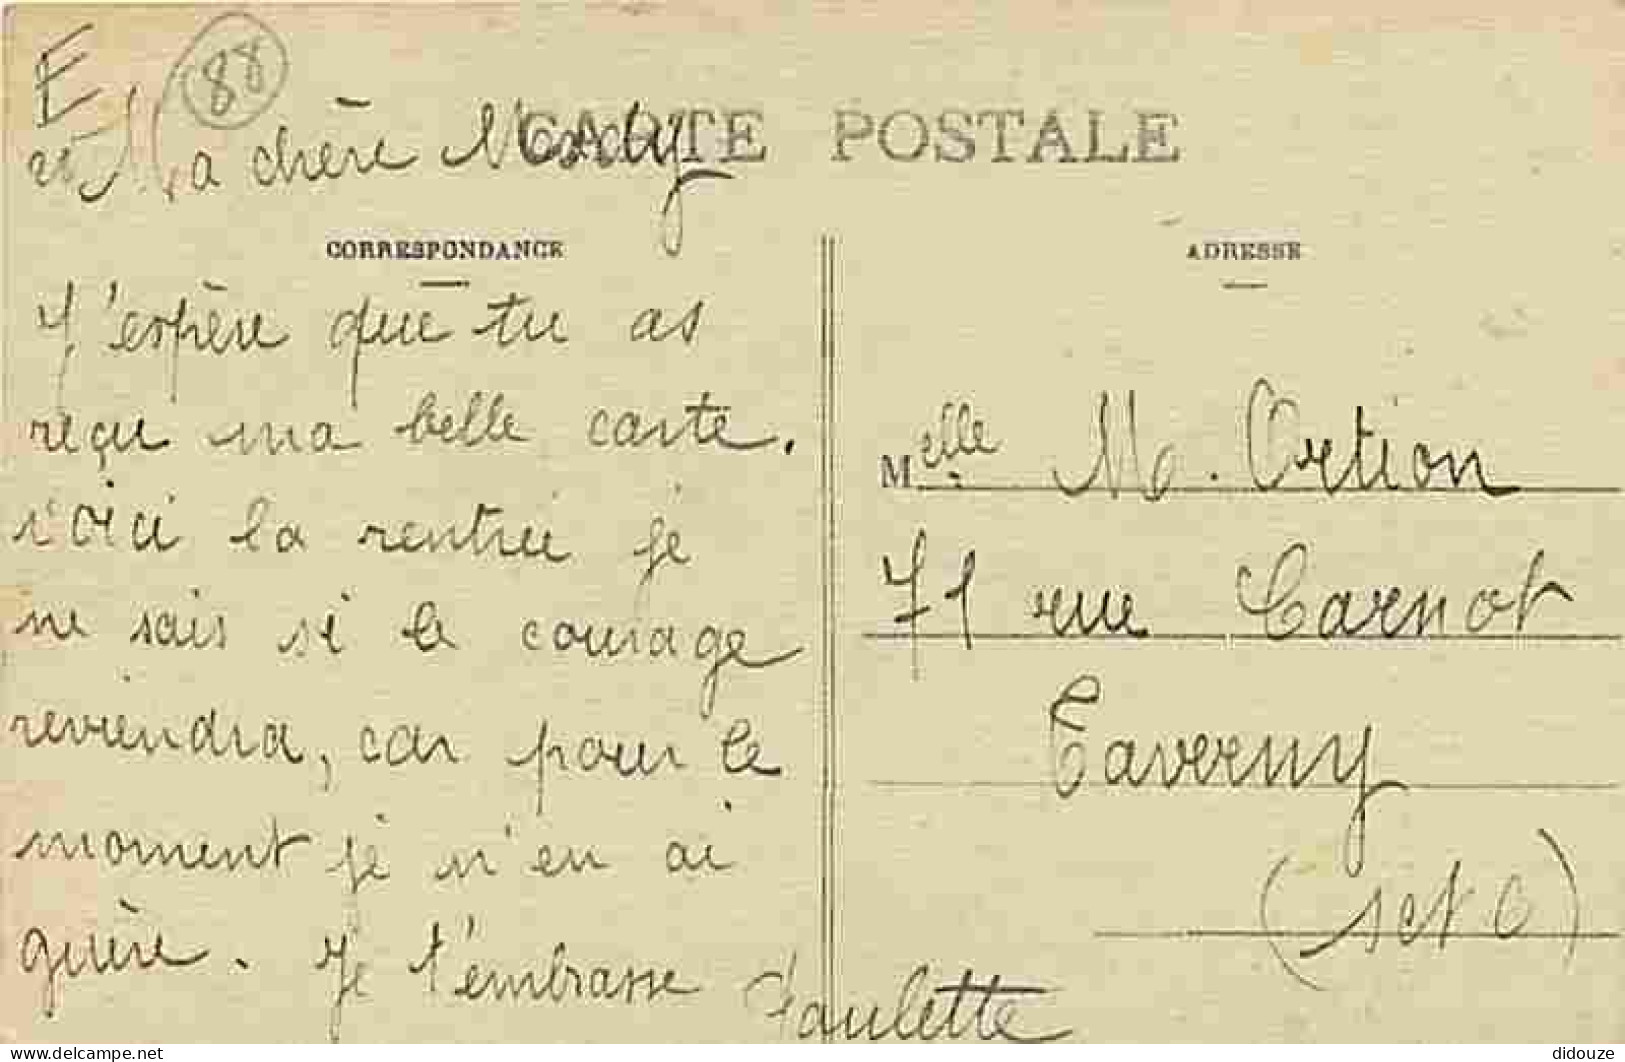 E
88
CARTE POSTALE
Ma chère
CORRESPONDANCE
J'espère que tu as
reçu ma belle carte.
voici la rentrée je
ne sais si le courage
reviendra, car pour le
moment je n'en ai
guère. Je t'embrasse
Paulette
ADRESSE
Melle M. Ortion
71 rue Carnot
Taverny
(S et O)
didouze